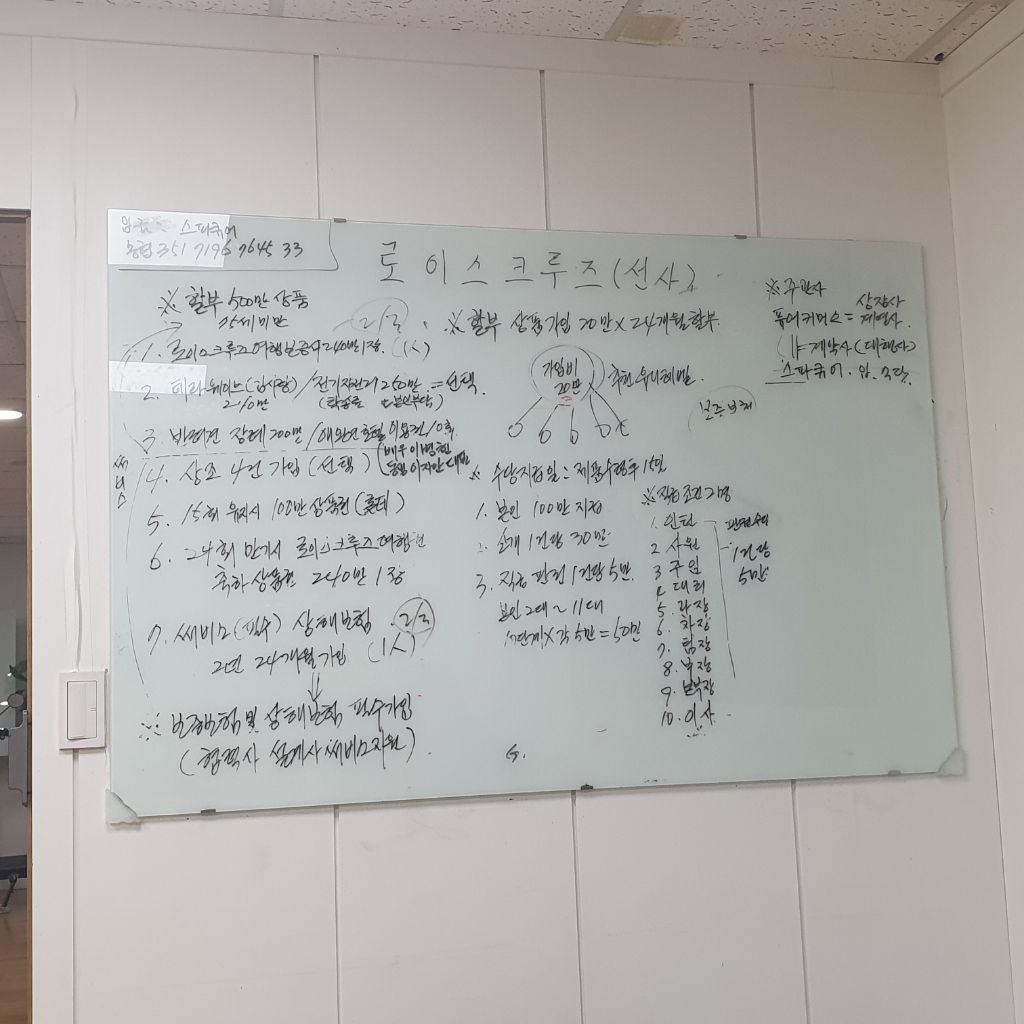 스파큐어
농협 351 7196 7645 33
로이스크루즈(선사)
※ 할부 500만 상품
2/3
1. 로이스크루즈여행상품사240만1장. (1人)
2. 테라웨이브(감사장) / 전기자전거 250만 = 선택
210만 (탁송료 본인부담)
3. 반려견 장례 200만 / 애완견호텔이용권 10회.
써비스
4. 상조 4건 가입 (선택) (배우 이병헌
5. 15회 유지시 100만 상품권 (롯데)
6. 24회 만기시 로이스크루즈여행권
축하상품권 240만 1장
7. 써비스(필수) 상해보험 2/3
2년 24개월 가입 (1人)
※ 보증보험 및 상해보험 필수가입
(협력사 설계사 써비스지원)
※ 할부 상품가입 20만 × 24개월할부.
가입비
20만
※ 수당지급일 = 제품수령후 15일
1. 본인 100만 지급
2. 소개 1건당 30만
3. 직급 판권 1건당 5만.
본인 2대 ~ 11대
10단계 × 각 5만 = 50만
※ 직급조건
1. 인턴
2 사원
3 주임
4 대리
5. 과장
6. 차장
7. 팀장
8. 부장
9. 본부장
10. 이사
판권수익
1건당
5만
※ 주관사
상장사
퓨어커머스 = 계열사.
계약사(대행사)
스파큐어.